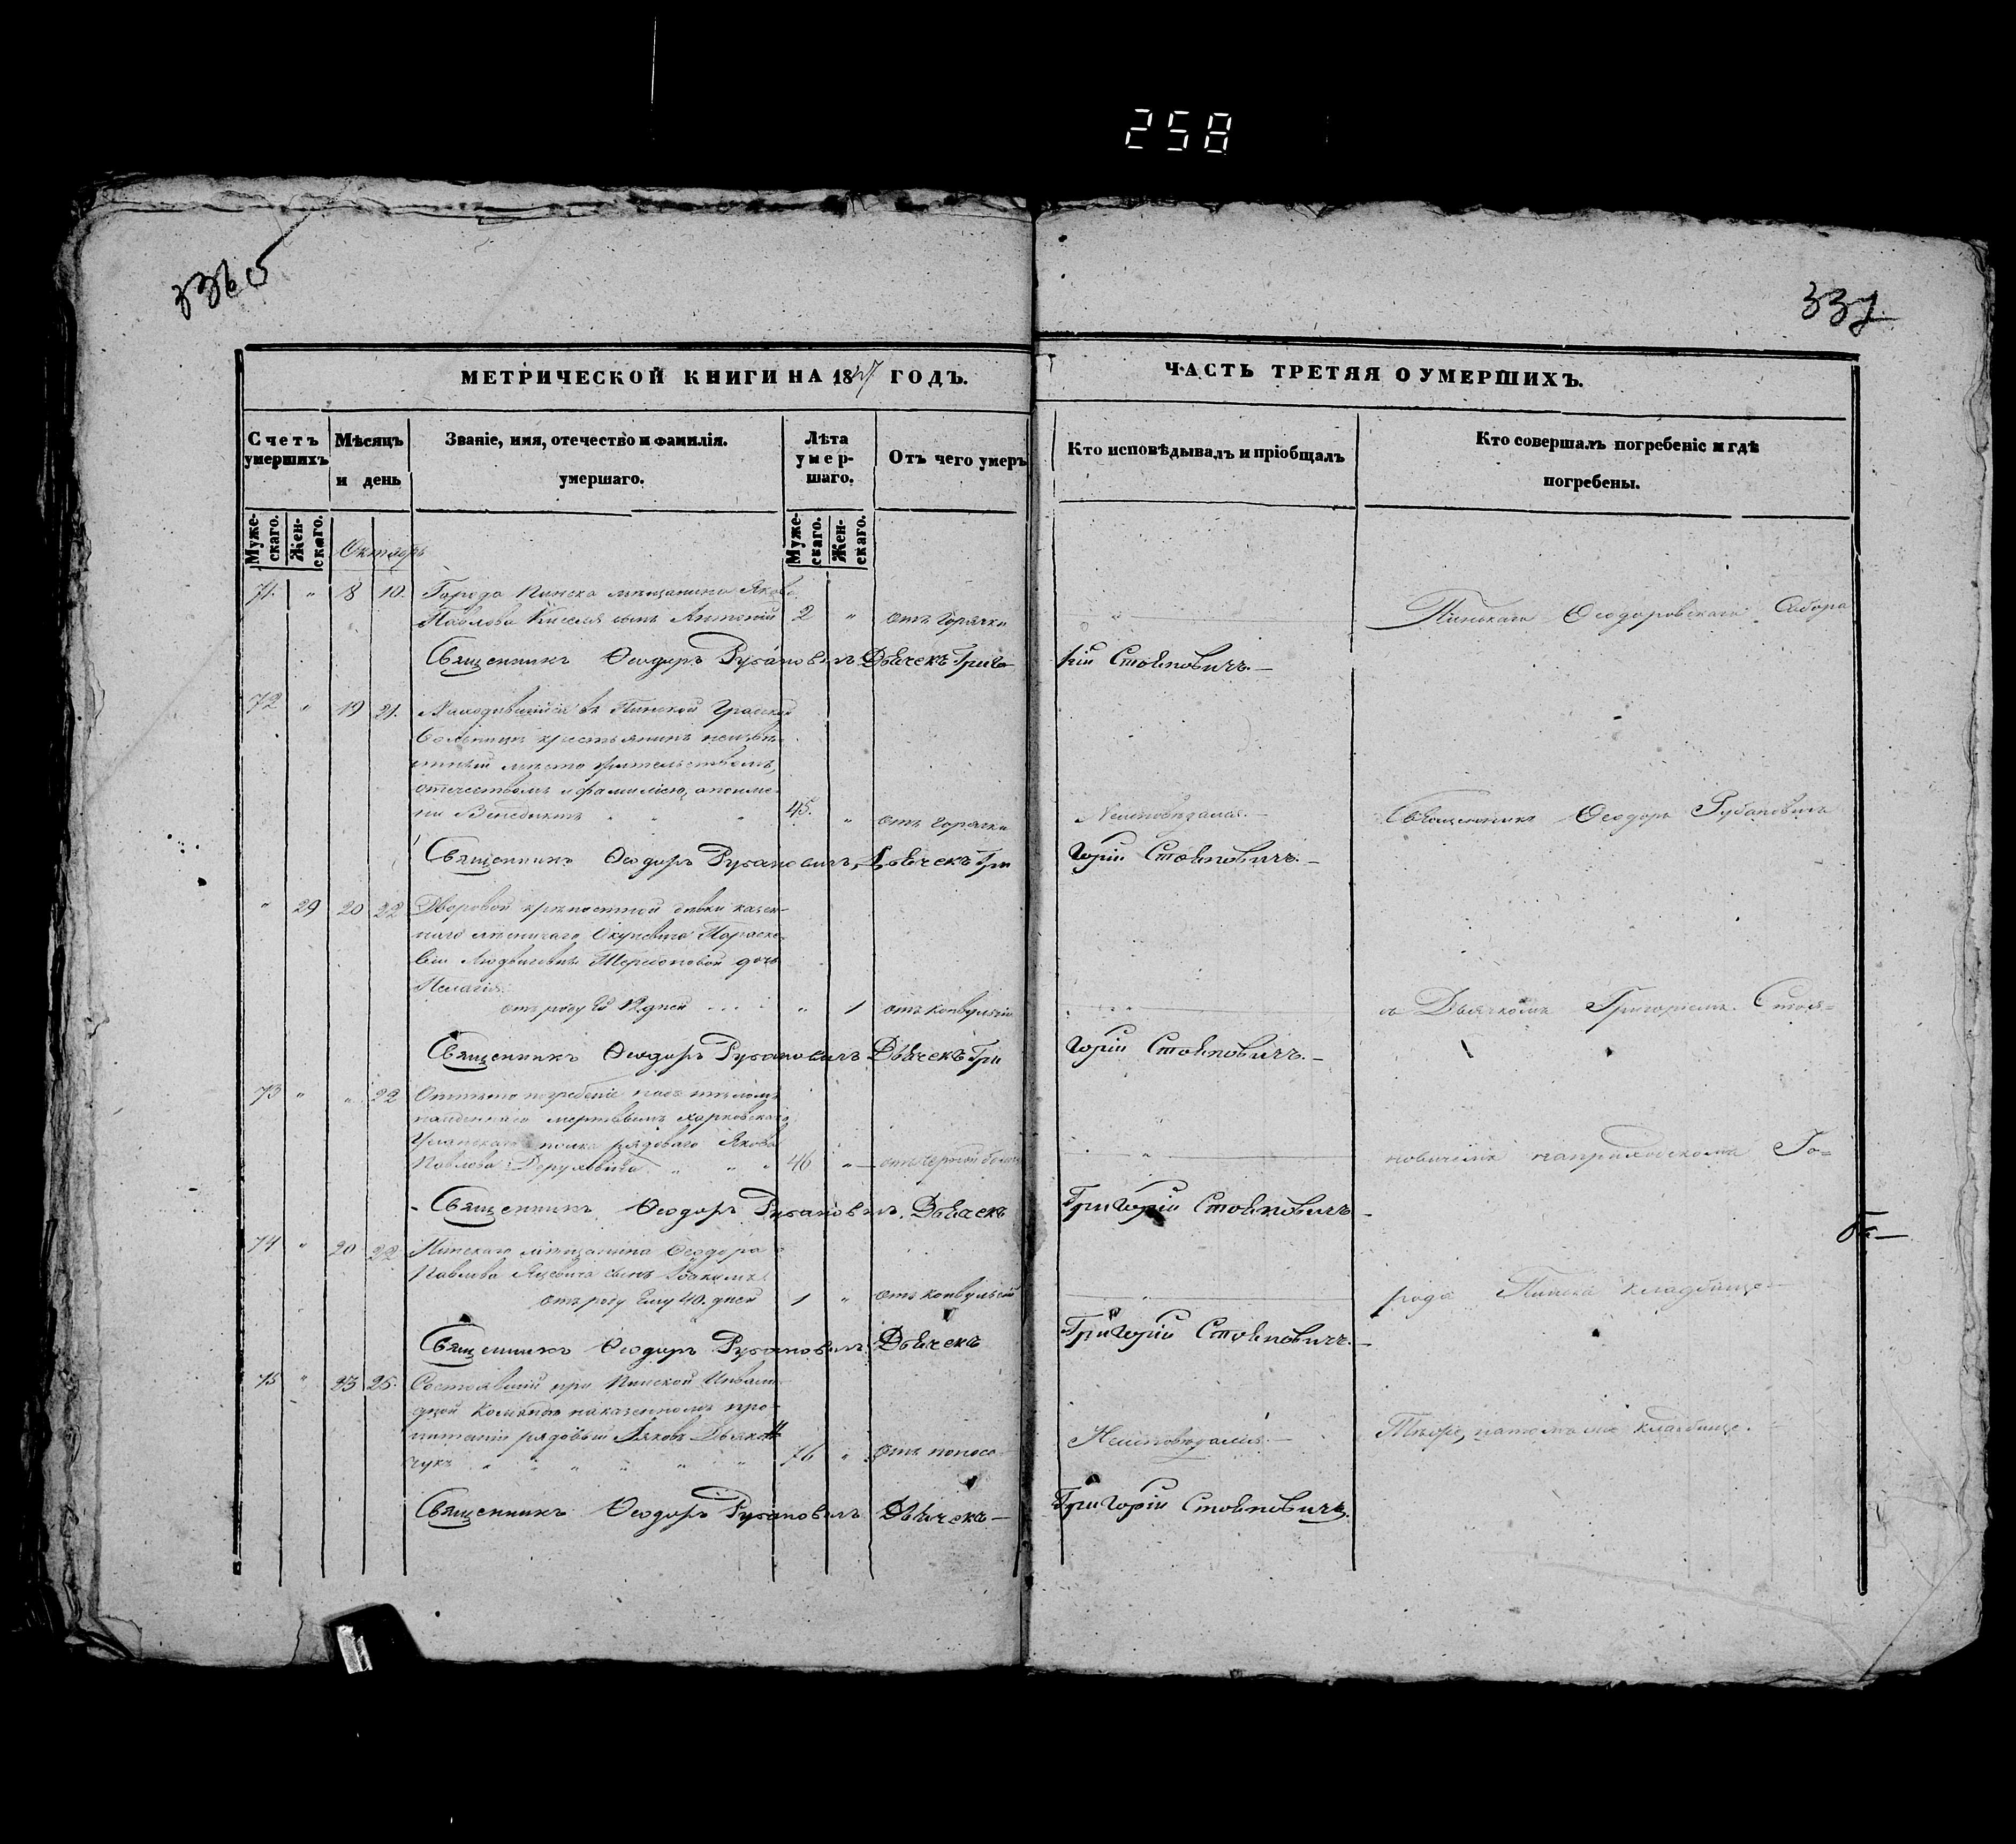 258
336 об
337
МЕТРИЧЕСКОЙ КНИГИ НА 1847 ГОДЪ.
ЧАСТЬ ТРЕТЯЯ О УМЕРШИХЪ.
Счетъ умершихъ
Мѣсяцъ и день
Званіе, имя, отечество и фамилія.
умершаго.
Лѣта умер-
шаго.
Отъ чего умеръ
Кто исповѣдывалъ и пріобщалъ
Кто совершалъ погребеніе и гдѣ
погребены.
Муже-
скаго.
Жен-
скаго.
Октябрь
Муже-
скаго.
Жен-
скаго.
71. " 8 10. Города Пинска мѣщанина Якова
Павлова Киселя сынъ Антоній 2 " отъ горячки
Пинскаго Ѳеодоровскаго Собора
Священникъ Ѳеодоръ Рубановичъ Дьячекъ Григо-
рій Стояновичъ.—
72 " 19 21. Находившійся въ Пинской Градской
больницѣ крестьянинъ неизвѣ-
стный мѣсто жительствомъ,
отечествомъ и фамиліею, а по име-
ни Венедиктъ 45. " отъ горячки
Неисповѣдался.—
Священникъ Ѳеодоръ Рубановичъ
Священникъ Ѳеодоръ Рубановичъ, Дьячекъ Гри
горій Стояновичъ.—
" 29 20 22 Дворовой крѣпостной дѣвки казен-
наго лѣсничаго Окулевича Параске-
віи Людвиговны дочь
Пелагія.
отъ роду ей 12 дней " 1 отъ конвульсій
съ Дьячкомъ Григоріемъ Стоя=
Священникъ Ѳеодоръ Рубановичъ Дьячекъ Гри
горій Стояновичъ.—
73 " " 22 Отпѣто погребеніе надъ тѣломъ
найденнаго мертвымъ Харковскаго
Уланскаго полка рядоваго Якова
Павлова 46 "
новичемъ на приходскомъ Го=
- Священникъ Ѳеодоръ Рубановичъ. Дьячекъ
Григорій Стояновичъ
74 " 20 22 Пинскаго мѣщанина Ѳеодора
Павлова Яцевича сынъ Іоакимъ
отъ роду ему 40. дней 1 " отъ конвульсій
рода Пинска кладбище
Священникъ Ѳеодоръ Рубановичъ Дьячекъ
Григорій Стояновичъ.—
75 " 23 25. Состоявшій при Пинской Инвали-
дной Командѣ на казенномъ про-
питаніи рядовый Яковъ
чукъ 76 " отъ поноса
Неисповѣдался.—
Тѣже, на томъ же кладбище.
Священникъ Ѳеодоръ Рубановичъ Дьячекъ—
Григорій Стояновичъ.